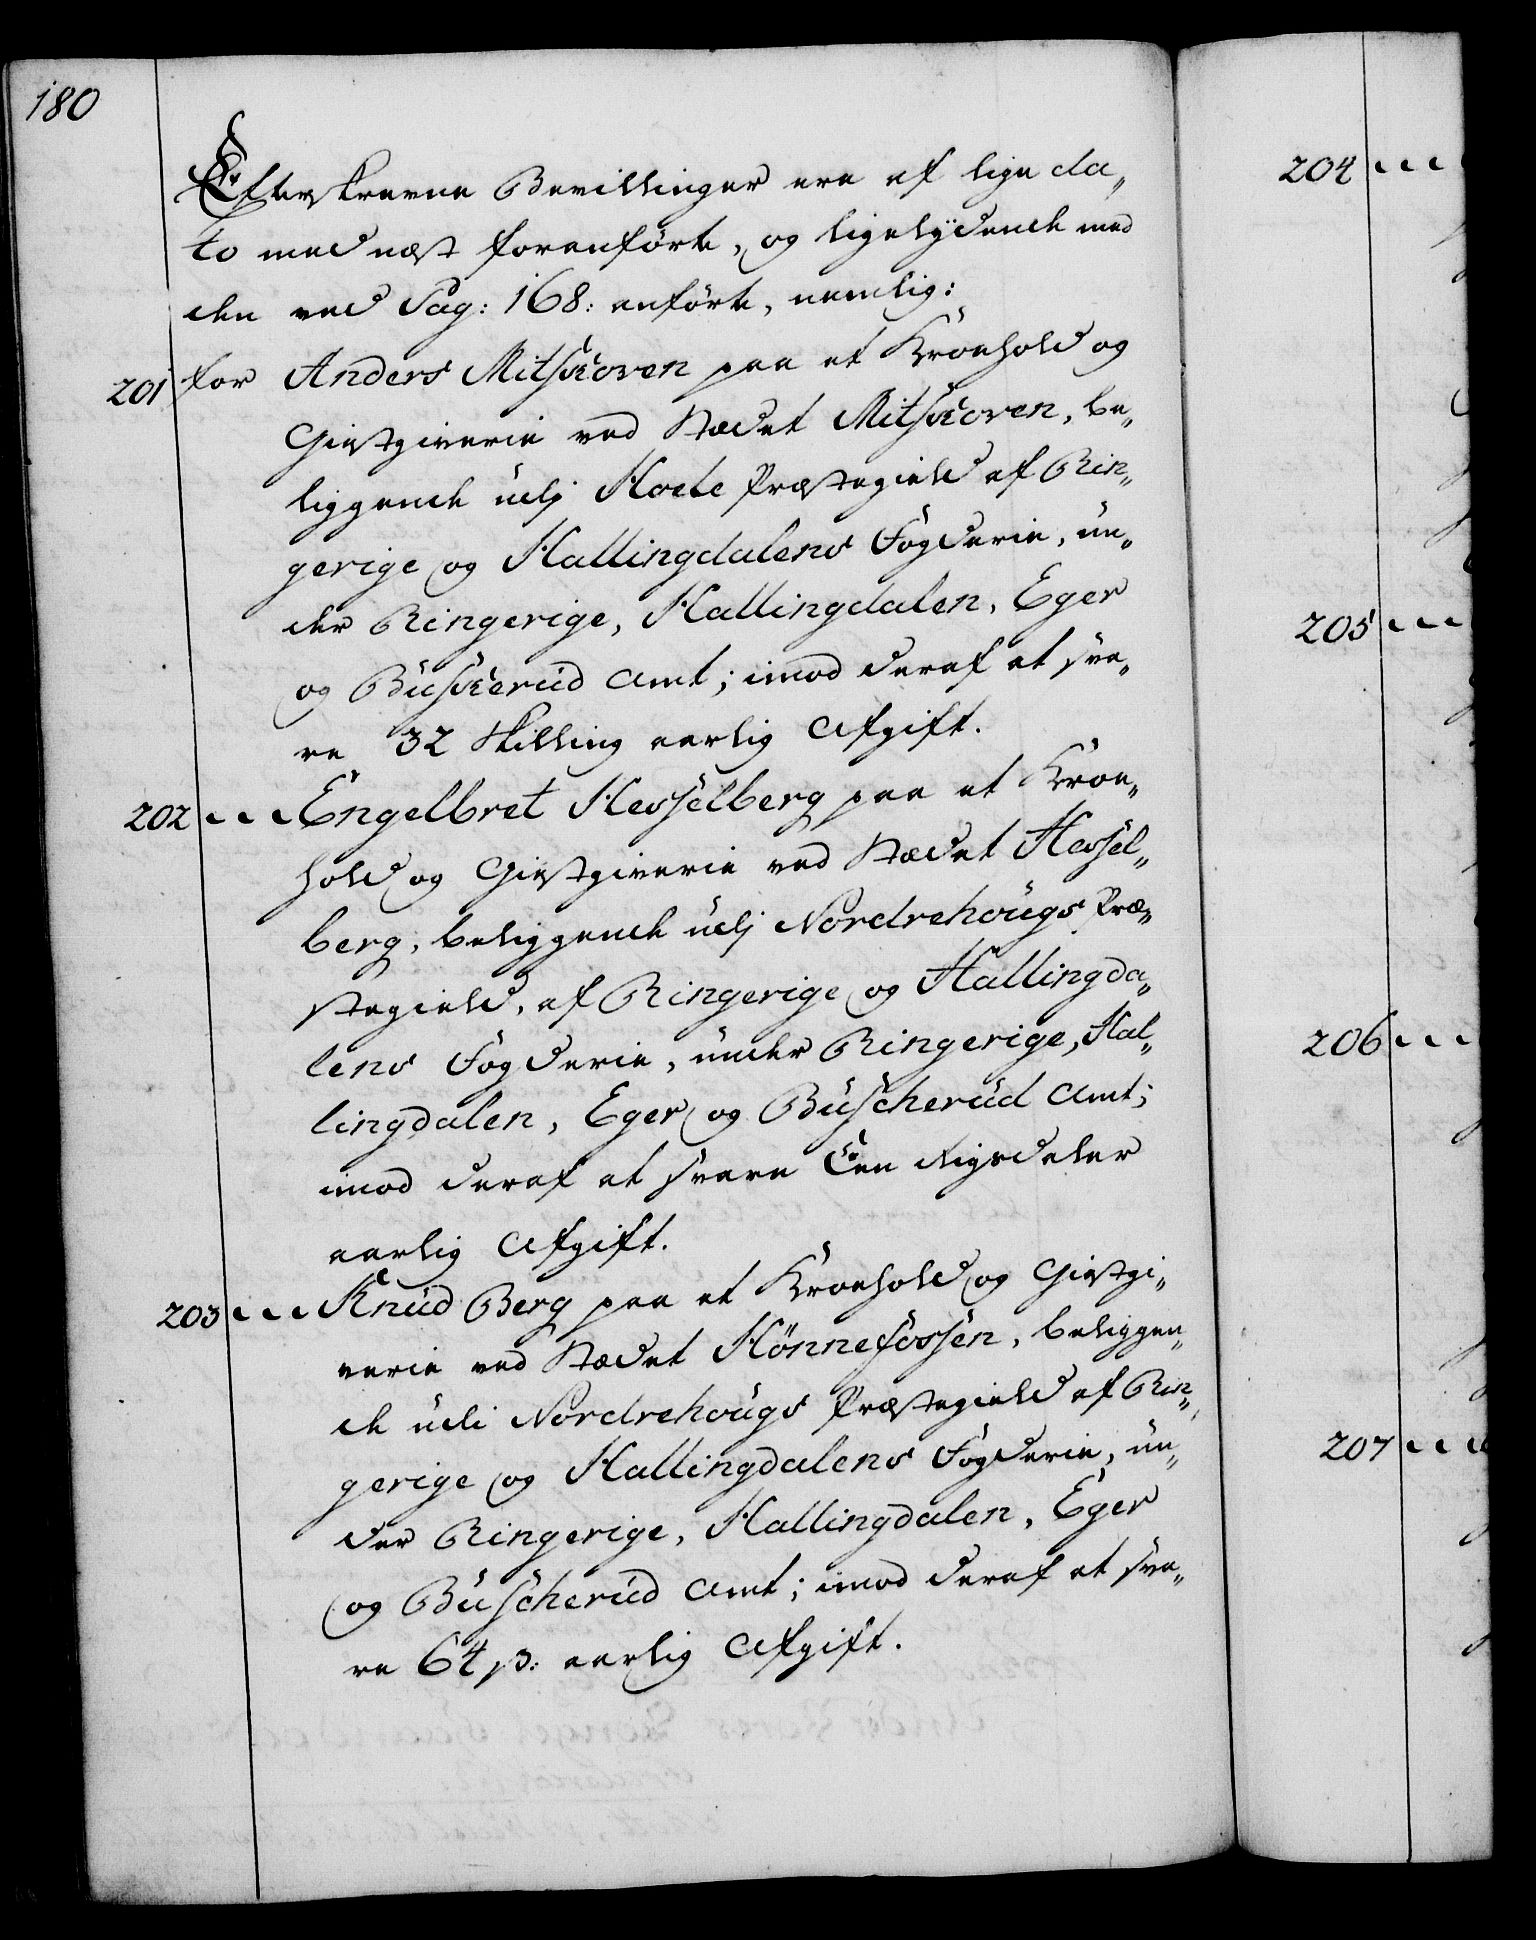 180
Efterskrevne Bevillinger ere af lige da„
to med næst foranførte, og ligelydende med
den ved Pag: 168: anførte, nemlig:
201 for Anders Mitskoven paa et Kroehold og
Giestgiverie ved Stædet Mitskoven, be„
liggende udj Hoele Præstegield af Rin„
gerige og Hallingdalens Fogderie, un„
der Ringerige, Hallingdalen, Eger
og Buskerud Amt; imod deraf at sva„
re 32 Skilling aarlig Afgift.
202 - - - Engelbret Hesselberg paa et Kroe„
hold og Giestgiverie ved Stædet Hessel„
berg, beliggende udj Nordrehougs Præ„
stegield, af Ringerige og Hallingda„
lens Fogderie, under Ringerige, Hal„
lingdalen, Eger og Buscherud Amt;
imod deraf at svare Een Rigsdaler
aarlig Afgift.
203 - - - Knud Berg paa et Kroehold og Giestgi„
verie ved Stædet Hönnefossen, beliggen„
de udi Nordrehougs Præstegield af Rin„
gerige og Hallingdalens Fogderie, un„
der Ringerige, Hallingdalen, Eger
og Buscherud Amt; imod deraf at sva„
re 64 ß: aarlig Afgift.
204 - - -
205 - - -
206 - - -
207 - - -